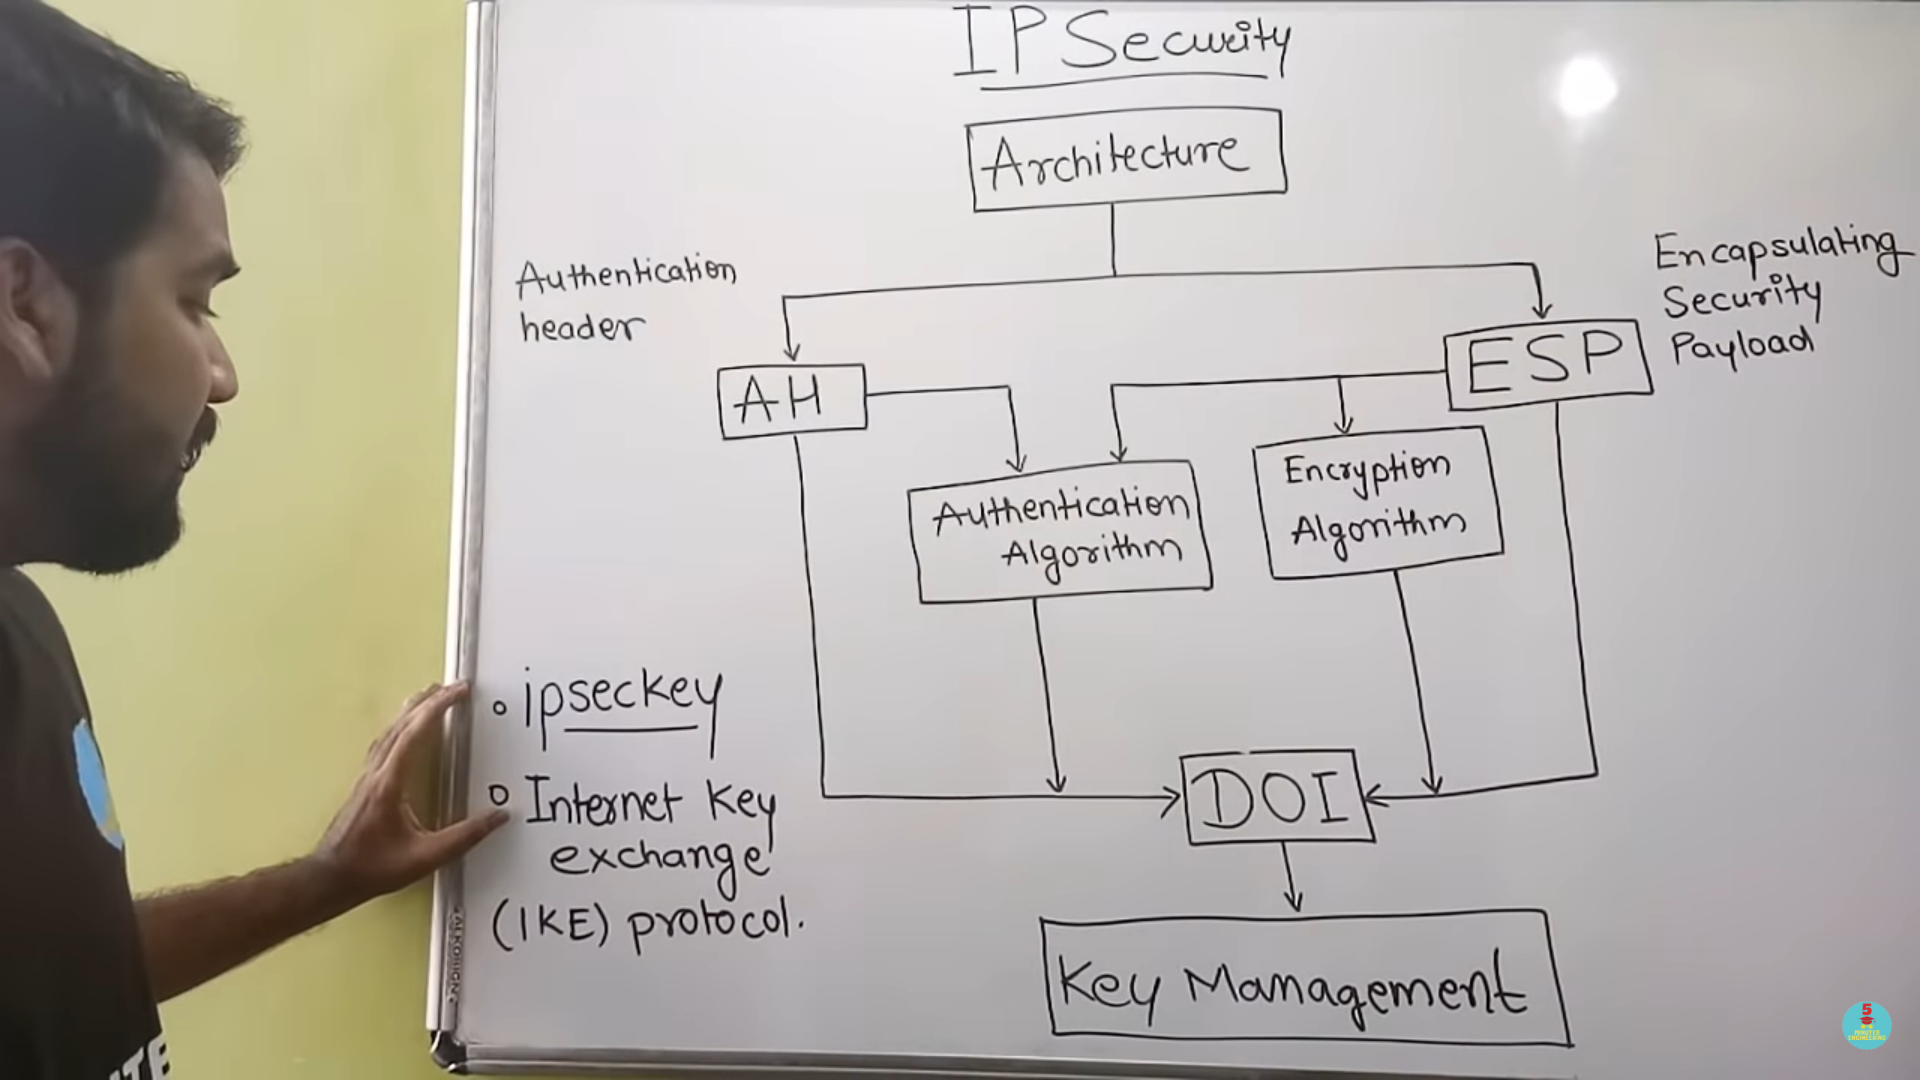 IP Security
Architecture
Authentication
header
Encapsulating
Security
Payload
AH
ESP
Authentication
Algorithm
Encryption
Algorithm
ipseckey
Internet Key
exchange
(IKE) protocol.
DOI
Key Management
5
MINUTES
ENGINEERING